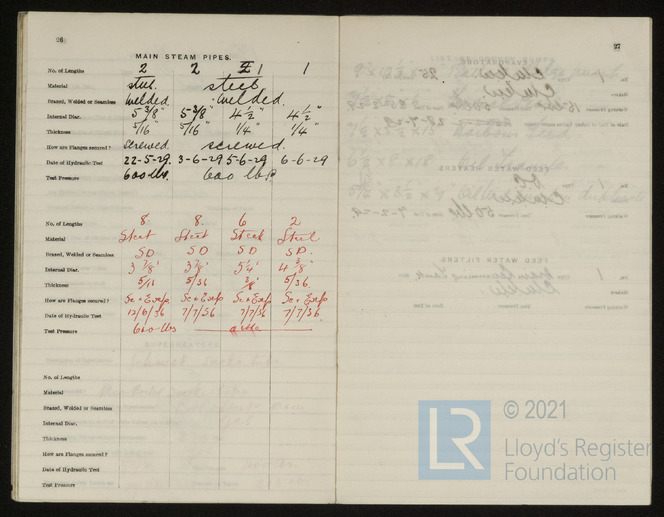 26
MAIN STEAM PIPES.
No. of Lengths 2 2 1 1
Material steel. steel.
Brazed, Welded or Seamless Welded. Welded.
Internal Diar. 5 3/8" 5 3/8" 4 1/2" 4 1/2"
Thickness 5/16" 5/16" 1/4" 1/4"
How are Flanges secured? screwed. screwed.
Date of Hydraulic Test 22-5-29 3-6-29 5-6-29 6-6-29
Test Pressure 600 lbs. 600 lbs.
No. of Lengths 8 8. 6 2
Material Steel Steel Steel Steel
Brazed, Welded or Seamless SD SD SD SD.
Internal Diar. 3 7/8" 3 7/8" 5 1/4" 4 3/8"
Thickness 5/16 5/36 5/36.
How are Flanges secured? Sc + Exp Sc + Exp Sc + Exp Sc + Exp
Date of Hydraulic Test 7/7/36 7/7/36 7/7/36
Test Pressure 600 lbs
No. of Lengths
Material
Brazed, Welded or Seamless
Internal Diar.
Thickness
How are Flanges secured?
Date of Hydraulic Test
Test Pressure
27
LR
© 2021
Lloyd's Register
Foundation